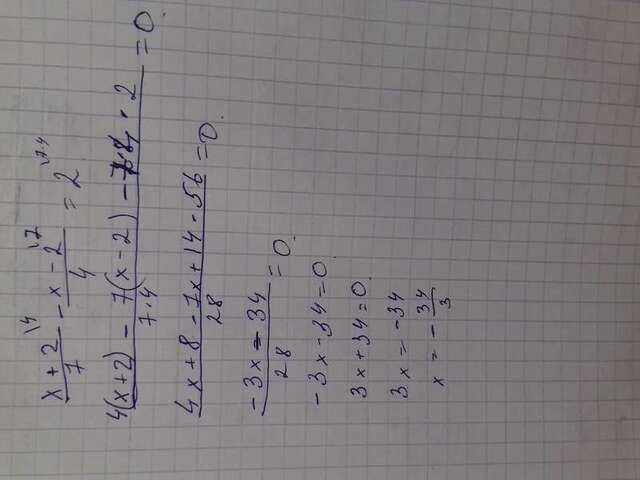 \frac{x+2^{\backslash 4}}{7} - \frac{x-2^{\backslash 7}}{4} = 2^{\backslash 7 \cdot 4}
\frac{4(x+2) - 7(x-2) - 7 \cdot 4 \cdot 2}{7 \cdot 4} = 0.
\frac{4x+8-7x+14-56}{28} = 0.
\frac{-3x-34}{28} = 0.
-3x-34=0.
3x+34=0.
3x = -34
x = -\frac{34}{3}